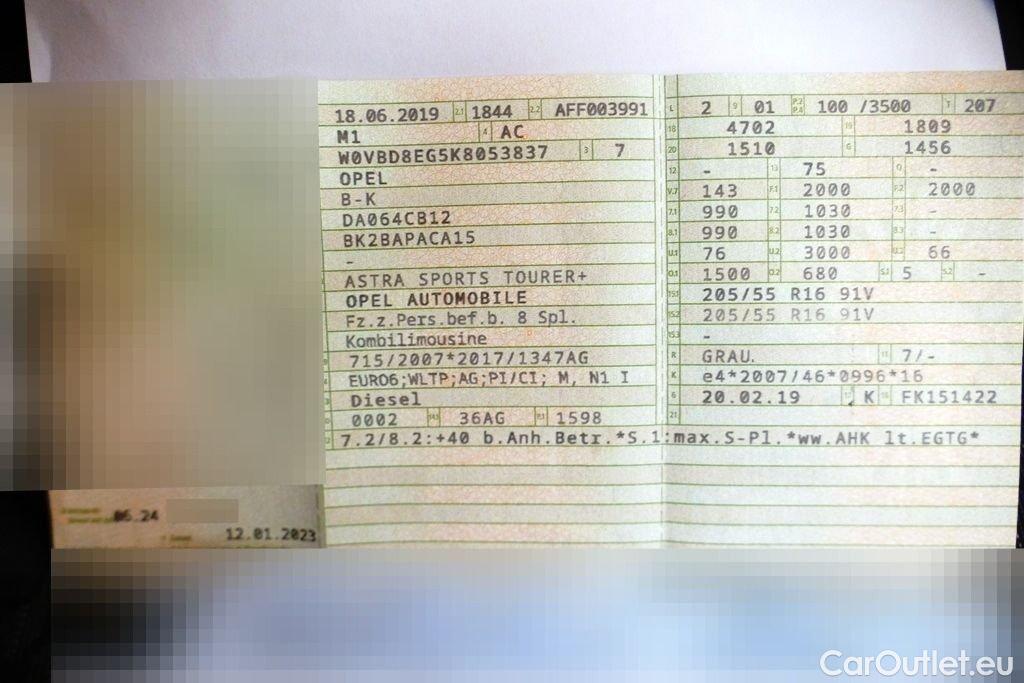 18.06.2019 2.1 1844 2.2 AFF003991
M1 4 AC
W0VBD8EG5K8053837 3 7
OPEL
B-K
DA064CB12
BK2BAPACA15
-
ASTRA SPORTS TOURER+
OPEL AUTOMOBILE
Fz.z.Pers.bef.b. 8 Spl.
Kombilimousine
715/2007*2017/1347AG
EURO6;WLTP;AG;PI/CI; M, N1 I
Diesel
0002 14.1 36AG P.1 1598
L 2 9 01 P.2 P.4 100 /3500 T 207
18 4702 19 1809
20 1510 G 1456
12 - 13 75 Q -
V.7 143 F.1 2000 F.2 2000
7.1 990 7.2 1030 7.3 -
8.1 990 8.2 1030 8.3 -
U.1 76 U.2 3000 U.3 66
O.1 1500 O.2 680 S.1 5 S.2 -
15.1 205/55 R16 91V
15.2 205/55 R16 91V
15.3 -
R GRAU. 11 7/-
K e4*2007/46*0996*16
6 20.02.19 17 K 16 FK151422
21
7.2/8.2:+40 b.Anh.Betr.*S.1:max.S-Pl.*ww.AHK lt.EGTG*
06.24
12.01.2023
CarOutlet.eu